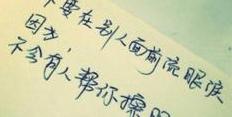 要在别人面前流眼淚
因为,
不会有人帮你擦